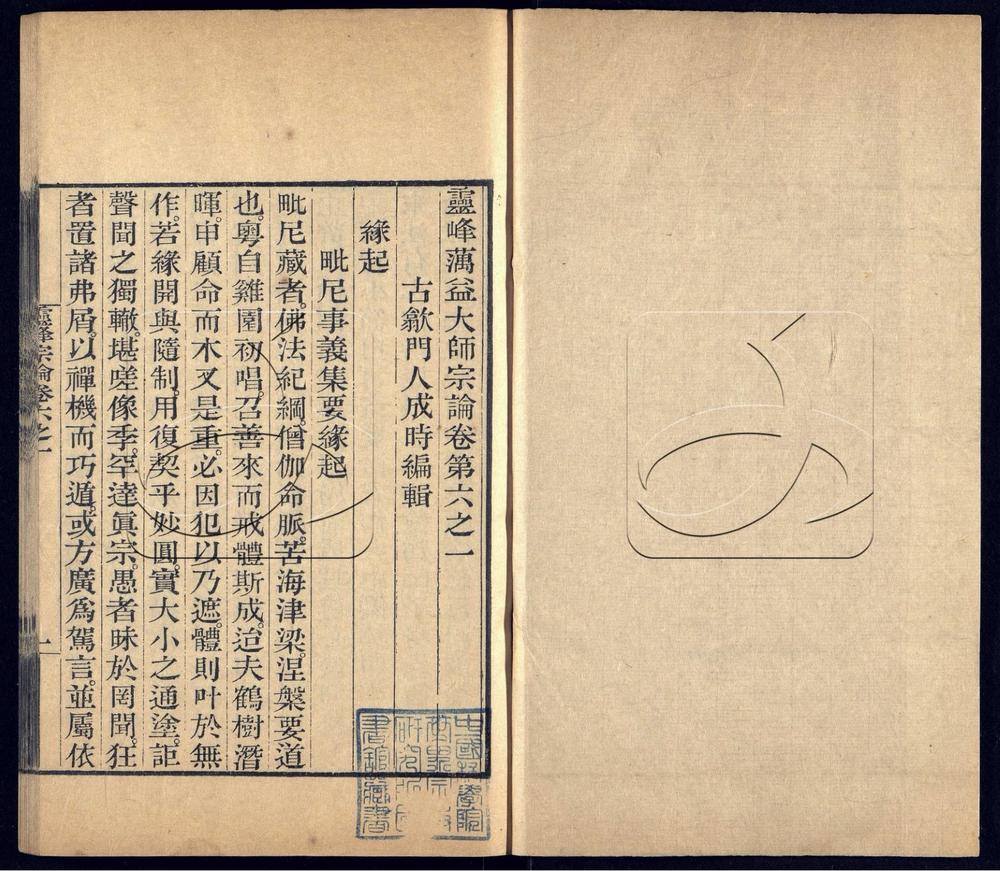 靈峰蕅益大師宗論卷第六之一
古歙門人成時編輯
緣起
毗尼事義集要緣起
毗尼藏者。佛法紀綱。僧伽命脈。苦海津梁。涅槃要道
也。粵自雞園初唱。召善來而戒體斯成。迨夫鶴樹潛
暉。申顧命而木叉是重。必因犯以乃遮。體則叶於無
作。若緣開與隨制。用復契乎妙圓。實大小之通塗。詎
聲聞之獨轍。堪嗟像季。罕達眞宗。愚者昧於罔聞。狂
者置諸弗屑。以禪機而巧遁。或方廣爲駕言。並屬依
靈峰宗論卷六之一
一